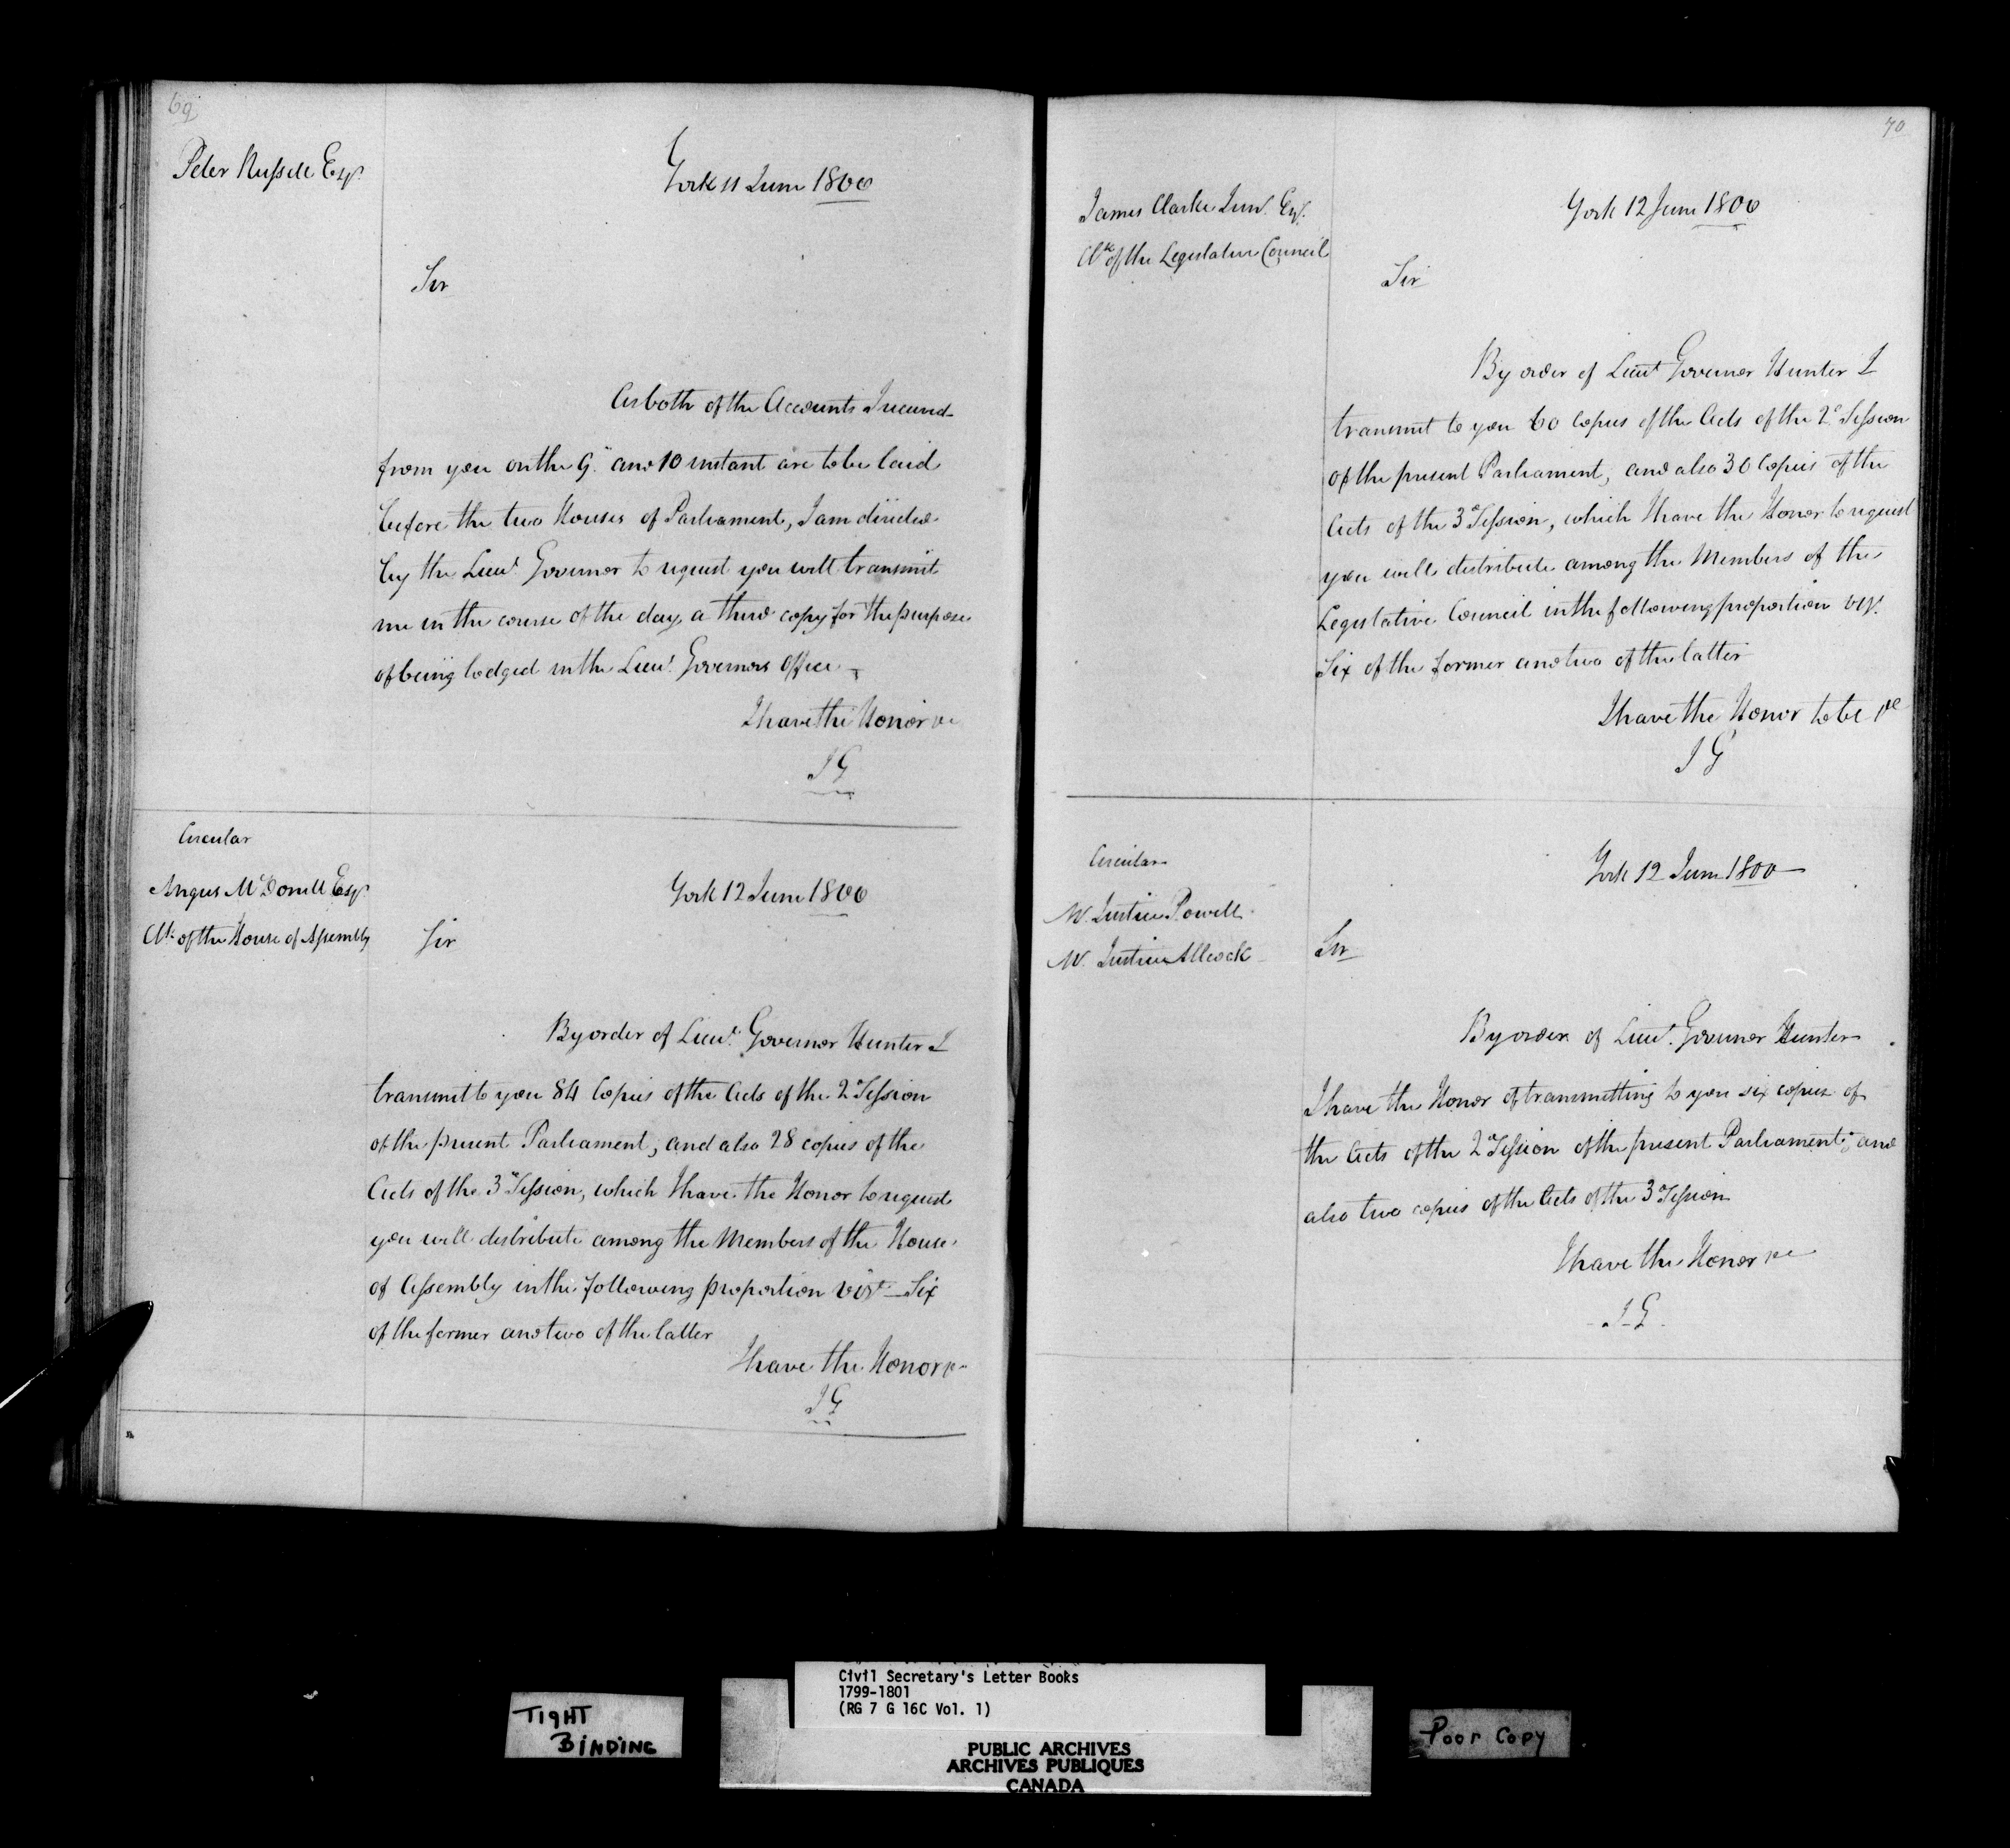 69
Peter Russell Esqr.
York 11 June 1800
Sir
As both of the Accounts Received
from you on the 9th and 10 instant are to be laid
before the two Houses of Parliament, I am directed
by the Lieut. Governor to request you will transmit
me in the course of the day a third copy for the purpose
of being lodged in the Lieut. Governors Office
I have the Honor &c
J G
Circular
Angus McDonell Esqr.
Clk. of the House of Assembly
York 12 June 1800
Sir
By order of Lieut. Governor Hunter I
transmit to you 84 Copies of the Acts of the 2d Session
of the present Parliament, and also 28 copies of the
Acts of the 3d Session, which I have the Honor to request
you will distribute among the Members of the House
of Assembly in the following proportion vizt. Six
of the former and two of the latter
I have the Honor &c
J G
70
James Clarke Junr. Esqr.
Clk of the Legislative Council
York 12 June 1800
Sir
By order of Lieut Governor Hunter I
transmit to you 60 Copies of the Acts of the 2d Session
of the present Parliament, and also 30 Copies of the
Acts of the 3d Session, which I have the Honor to request
you will distribute among the Members of the
Legislative Council in the following proportion vizt.
Six of the former and two of the latter
I have the Honor to be &c
J G
Circular
Mr. Justice Powell
Mr. Justice Allcock
York 12 June 1800
Sir
By order of Lieut. Governor Hunter
I have the Honor of transmitting to you six copies of
the Acts of the 2d Session of the present Parliament; and
also two copies of the Acts of the 3d Session
I have the Honor &c
J G
TIGHT
BINDING
Civil Secretary's Letter Books
1799-1801
(RG 7 G 16C Vol. 1)
PUBLIC ARCHIVES
ARCHIVES PUBLIQUES
CANADA
Poor Copy